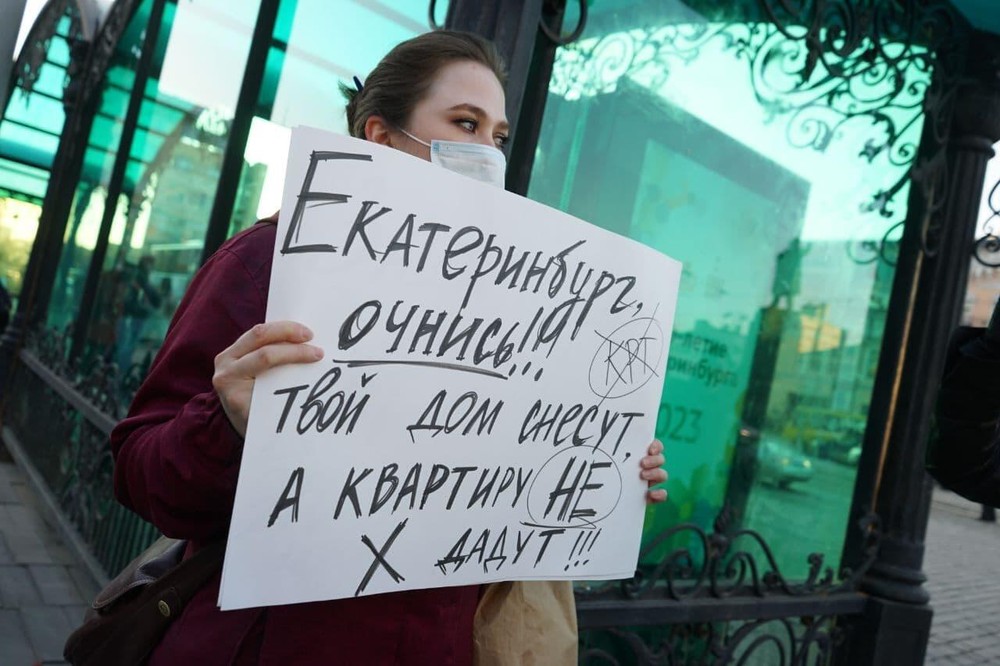 Екатеринбург,
очнись!!!
КРТ
твой дом снесут,
а квартиру НЕ
Х дадут!!!
-летие
ринбурга
023